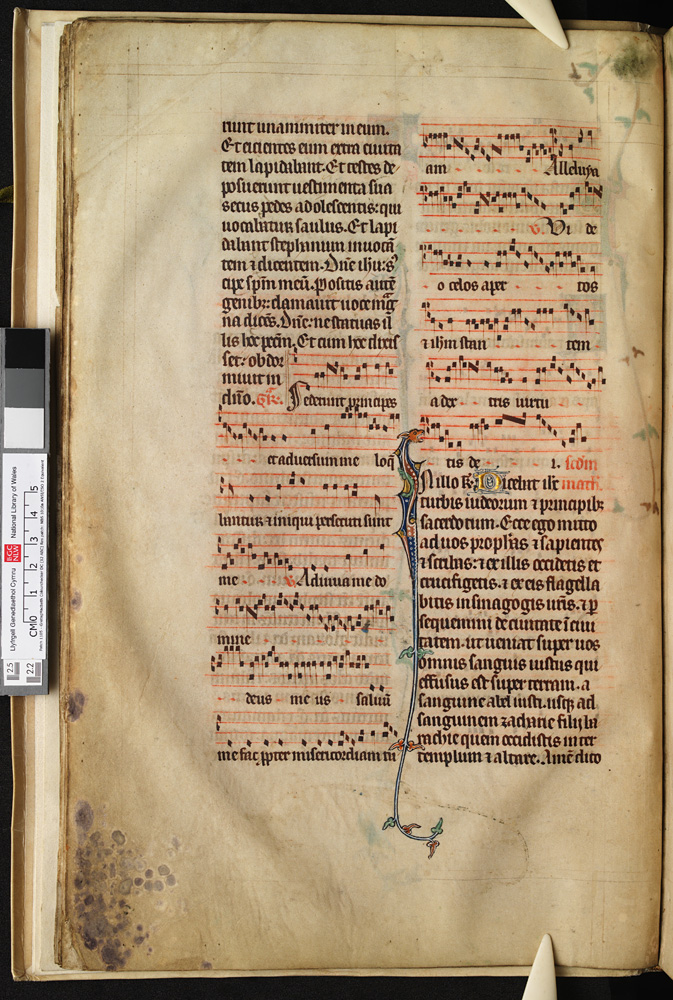 runt unanimiter in eum.
Et eicientes eum extra ciuita
tem lapidabant. Et testes de
posuerunt uestimenta sua
secus pedes adolescentis: qui
uocabatur saulus. Et lapi
dabant stephanum inuocā
tem & dicentem. Dn̄e ih̄u: s
cipe sp̄m meū. Positis autē
genibꝫ: clamauit uoce mag
na dicēs. Dn̄e: ne statuas il
lis hoc pec̄m. Et cum hoc dixis
set: obdor
miuit in
dn̄o. Gr̄. Sederunt principes
et aduersum me loq̄
bantur & iniqui persecuti sunt
me ℣. Adiuua me do
mine
deus me us saluū
me fac ꝓpter misericordiam tu
am Alleluya
℣. Vi de
o celos aper tos
& ih̄m stan tem
a dex tris uirtu
tis de i. scdm
N illo t̄. Dicebat ih̄c math.
turbis iudeorum ⁊ principibꝫ
sacerdotum. Ecce ego mitto
ad uos proph̄as ⁊ sapientes
⁊ scribas: ⁊ ex illis occidetis et
crucifigetis. ⁊ ex eis flagella
bitis in sinagogis ur̄is. ⁊ ꝑ
sequemini de ciuitate ī ciui
tatem. ut ueniat super uos
omnis sanguis iustus qui
effusus est super terram. a
sanguine abel iusti. usqꝫ ad
sanguinem zacharie filii ba
rachie quem occidistis inter
templum ⁊ altare. Amē dico
Llyfrgell Genedlaethol Cymru
National Library of Wales
LlGC
NLW
CM 0 1 2 3 4 5
2.5 2.2